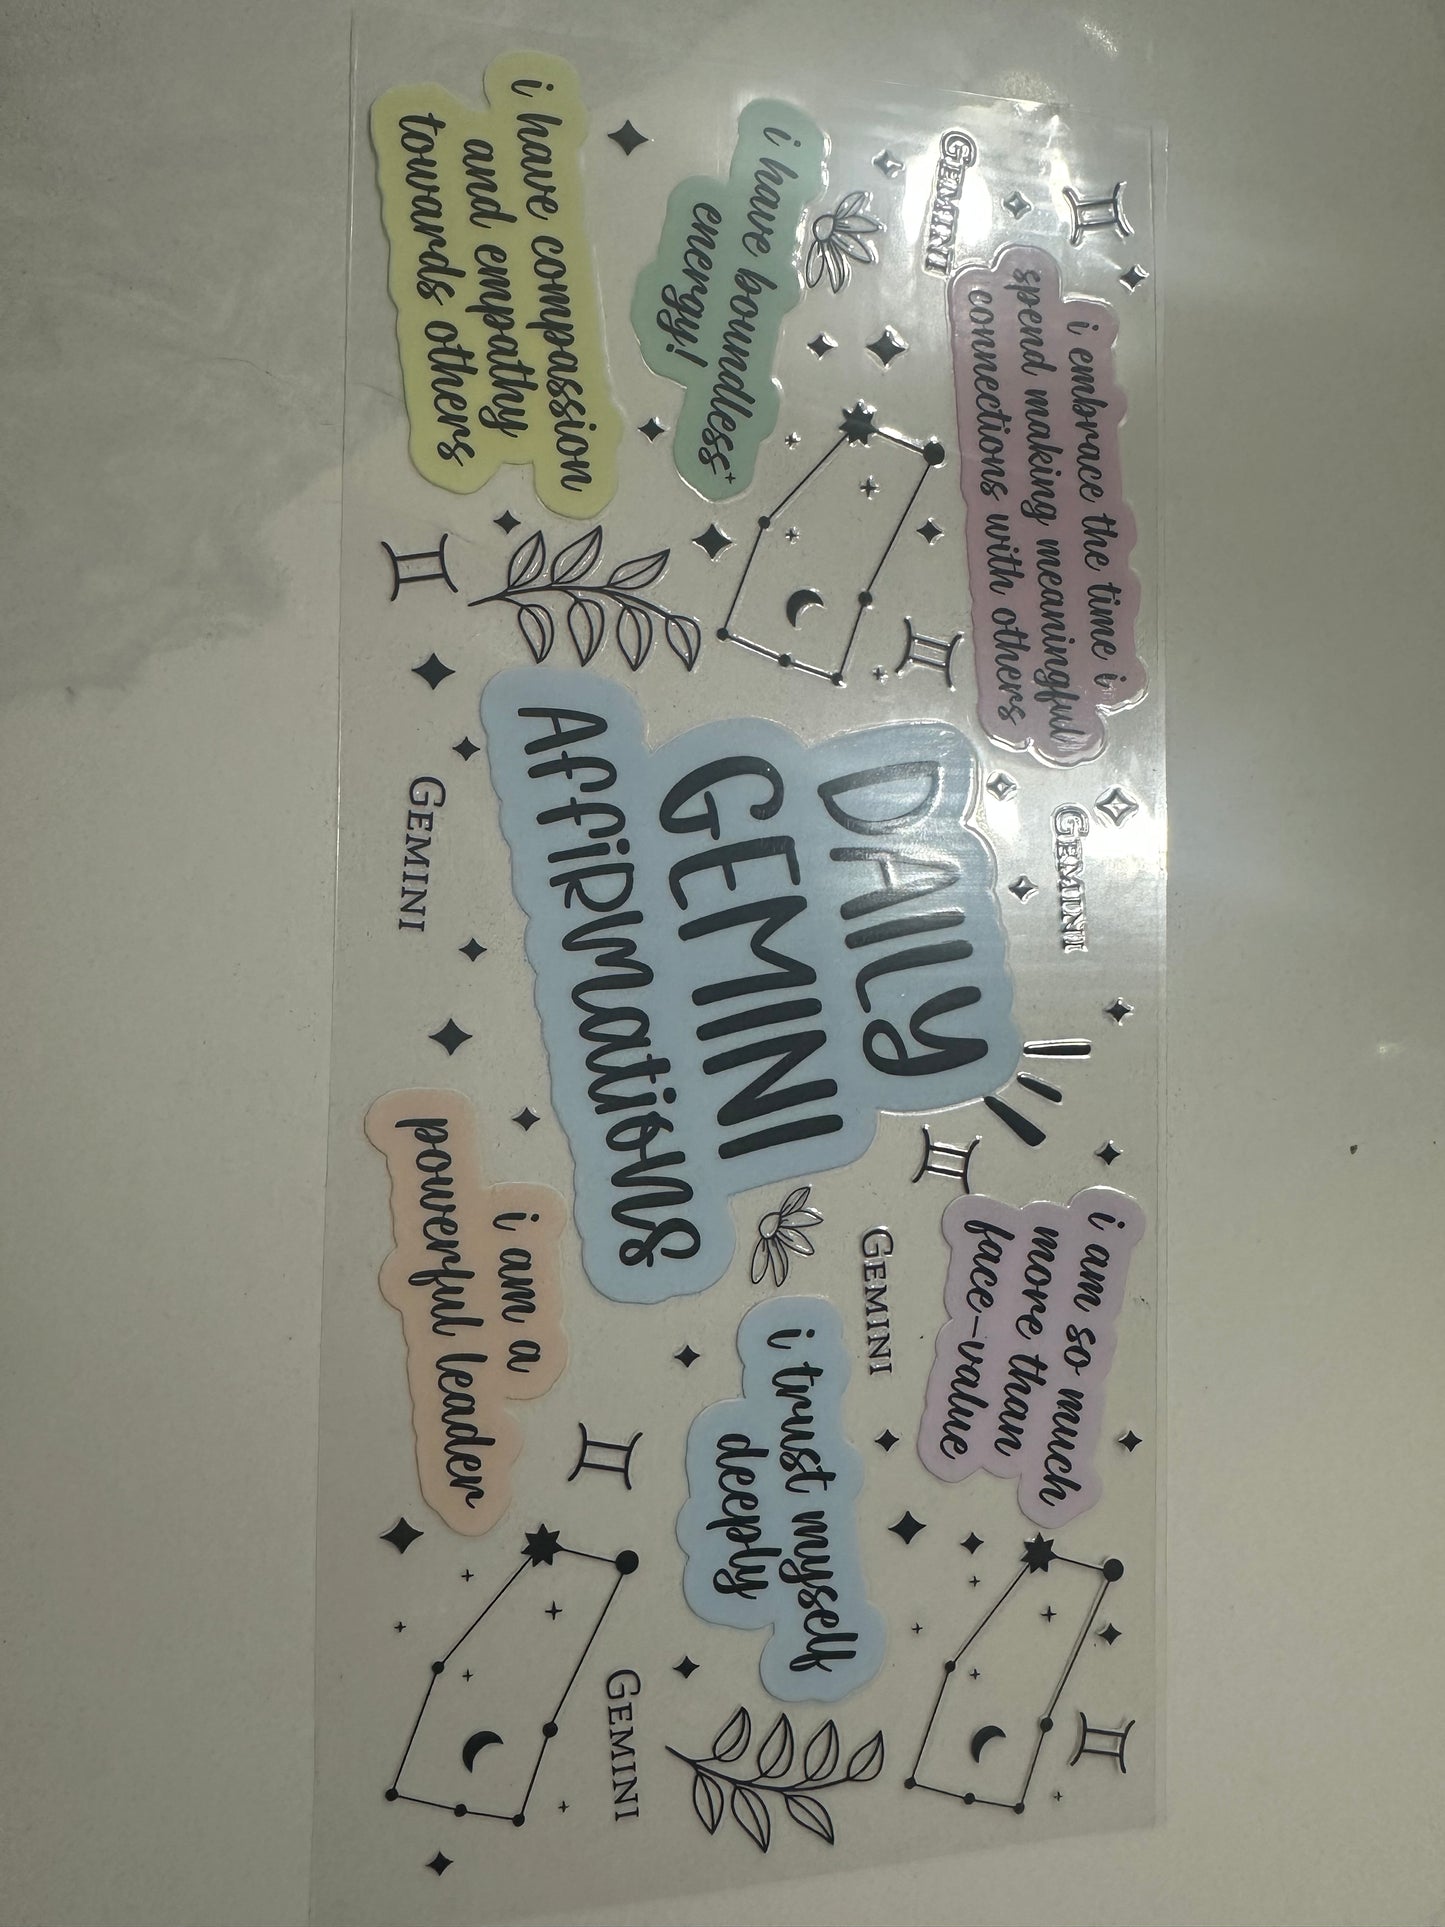 GEMINI
i embrace the time i
spend making meaningful
connections with others
GEMINI
i am so much
more than
face-value
i have boundless
energy!
DAILY
GEMINI
AFFIRMATIONS
GEMINI
i trust myself
deeply
i have compassion
and empathy
towards others
GEMINI
i am a
powerful leader
GEMINI